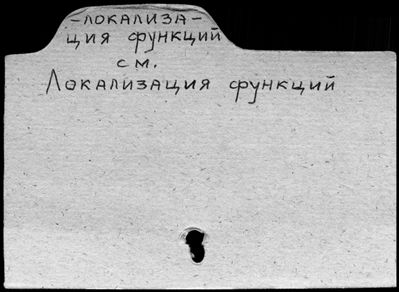 -ЛОКАЛИЗА-
ЦИЯ ФУНКЦИЙ
см.
Локализация функций